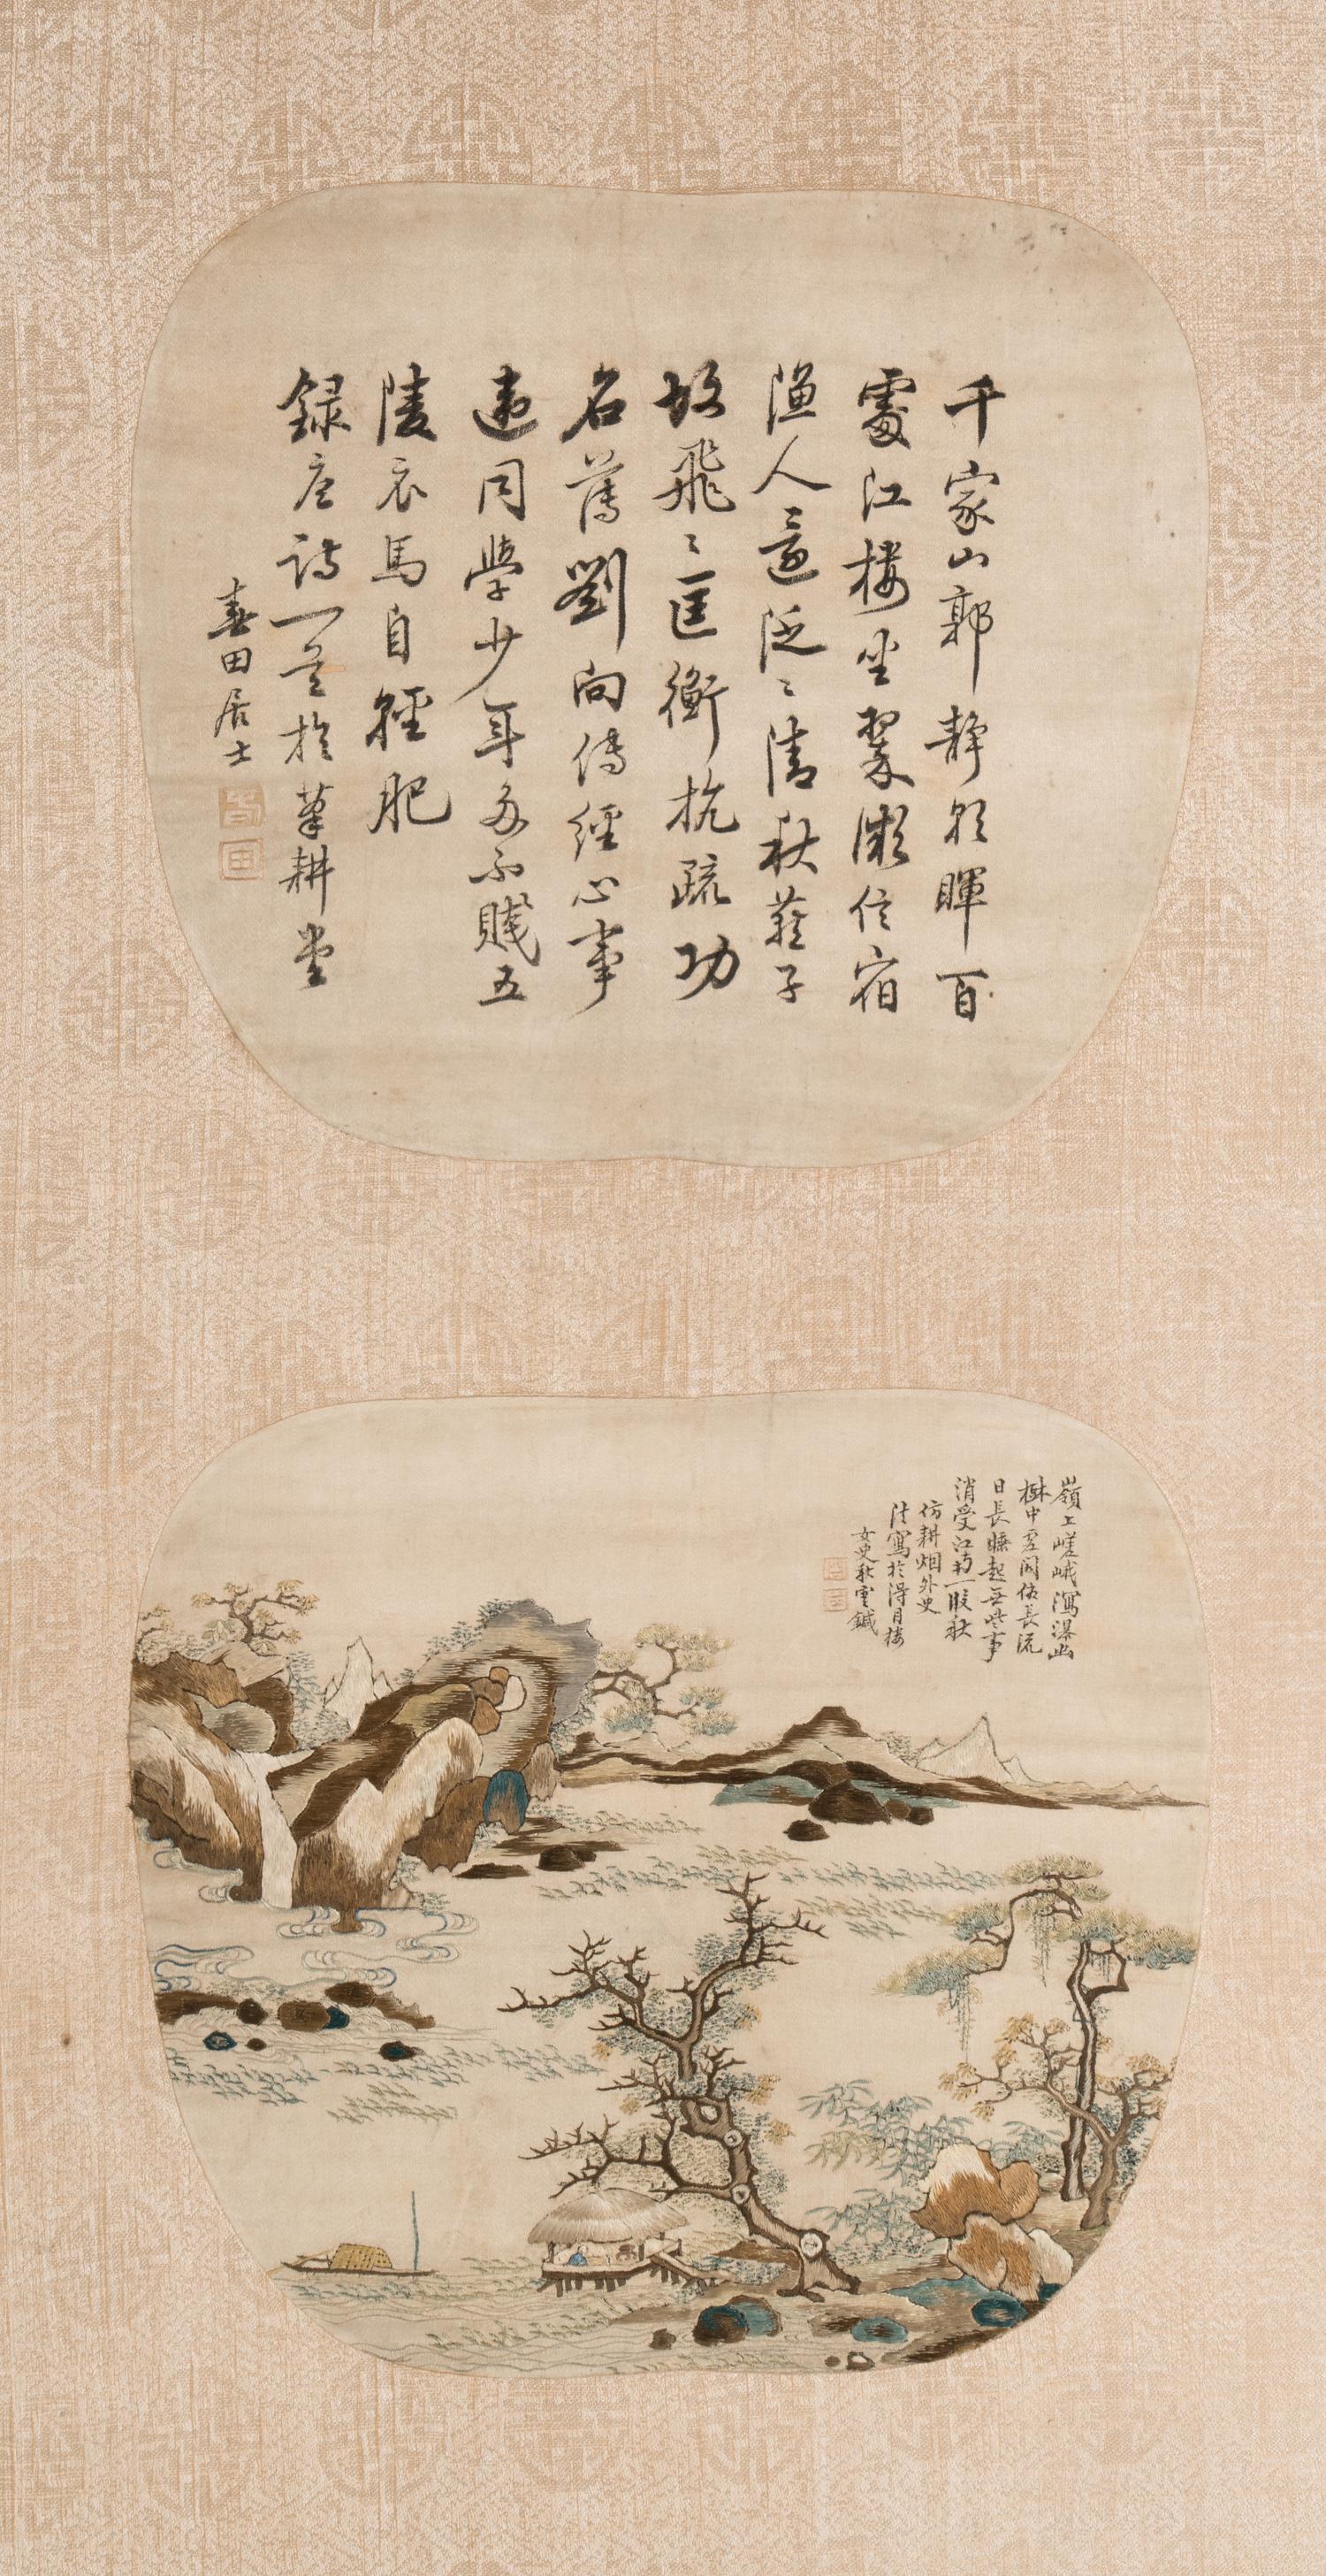 千家山郭靜朝暉百
處江樓坐翠微信宿
漁人還泛〻清秋燕子
故飛〻匡衡抗疏功
名薄劉向傳經心事
違同學少年多不賤五
陵衣馬自輕肥
録唐詩一首於筆耕堂
田居士
嶺上嵯峨瀉瀑幽
樹中虛閣依長流
日長睡起無些事
消受江村一段秋
仿耕烟外史
法寫於得月樓
女史秋雲鍼